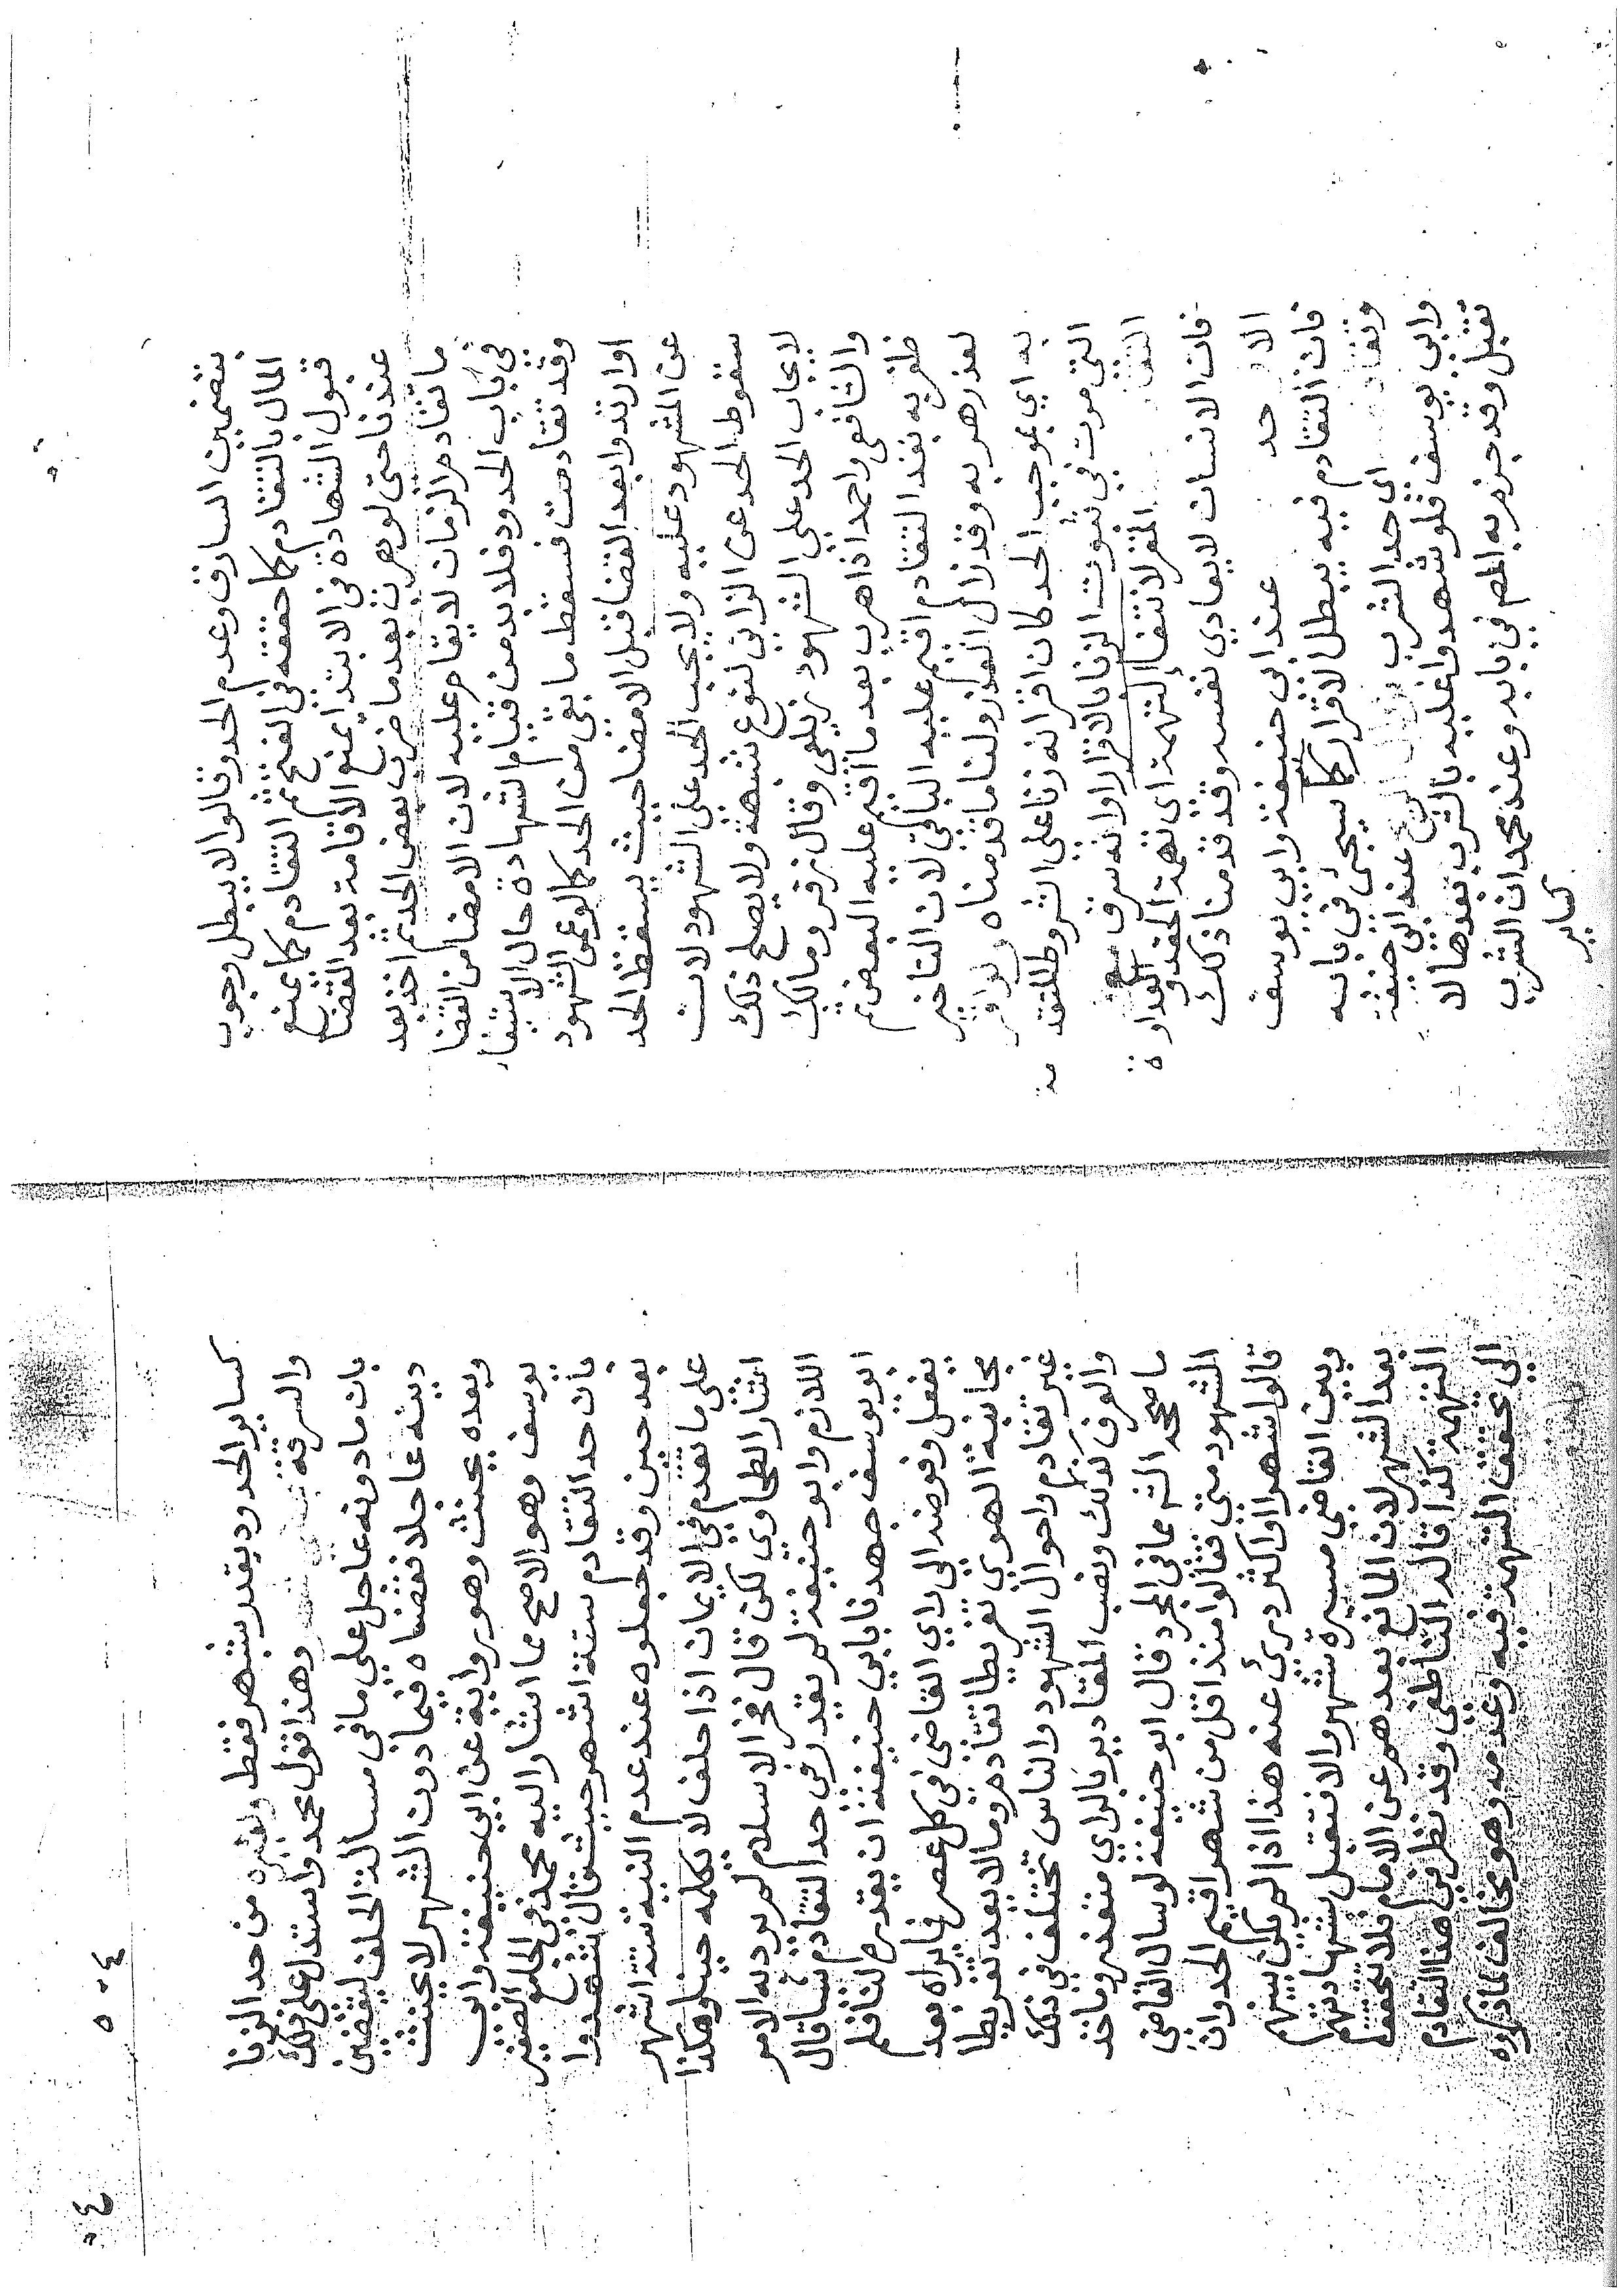 بتضمين السارق وعدم الحد وقالوا لا يبطل وجوب
المال بالتقادم كما حققه في الفتح ثم التقادم كما يمنع
قبول الشهادة في الابتدا يمنع الاقامة بعد القضا
عندنا حتى لو هرب بعد ما ضرب بعض الحد ثم اخذ بعد
ما تقادم الزمان لا يقام عليه لان الامضا من القضا
في باب الحدود فلا بد من قيام الشهادة حال الاستيفا
وقد تقادمت فسقط ما بقي من الحد كما لو عمى الشهود
او ارتدوا بعد القضا قبل الامضا حيث يسقط الحد
عن المشهود عليه ولا يجب الحد على الشهود لان
سقوط الحد عن الزاني لنوع شبهة ولا يصلح ذلك
لايجاب الحد على الشهود زيلعي وقال زفر ومالك
والشافعي واحمد اذا هرب بعد ما اقيم عليه البعض ثم
ظفر به بعد التقادم اقيم عليه الباقي لان التاخير
لعذر هربه وقد زال العذر ولنا ما قدمناه ولو اقر
به اي بموجب الحد كان اقر انه زنا على الشروط المتقدمة
التي مرت في ثبوت الزنا بالاقرار او انه سرق مع
التقادم المقر لانتفا التهمة اي تهمة الحقد والعداوة
فان الانسان لا يعادي نفسه وقد قدمنا ذلك
الا حد عند ابي حنيفة وابي يوسف
فان التقادم فيه يبطل الاقرار كما سيجئ في بابه
وتقادم اي حد الشرب بزوال الريح عند ابي حنيفة
وابي يوسف فلو شهدوا عليه بالشرب بعدها لا
تقبل وقد جزم به المص في بابه وعند محمد ان الشرب
كساير
كساير الحدود يقدر بشهر فقط ولغيره من حد الزنا
والسرقة بشهر وهذا قول محمد واستدل على ذلك
بان ما دونه عاجل على ما في مسالة الحلف ليقضين
دينه عاجلا فقضاه فيما دون الشهر لا يحنث
وبعده يحنث وهو رواية عن ابي حنيفة وابي
يوسف وهو الاصح مما اشار اليه محمد في الجامع الصغير
بان حد التقادم ستة اشهر حيث قال شهدوا
بعد حين وقد جعلوه عند عدم النية ستة اشهر
على ما تقدم في الايمان اذا حلف لا يكلمه حينا وهكذا
اشار الطحاوي لكن قال فخر الاسلام لم يرد به الامر
اللازم وابو حنيفة لم يقدر في حد التقادم شيا قال
ابو يوسف جهدنا بابي حنيفة ان يقدره لنا فلم
يفعل وفوضه الى راي القاضي في كل عصر فما يراه بعد
مجانبة الهوي تفريطا تقادم وما لا يعد تفريطا
غير تقادم واحوال الشهود والناس تختلف في ذلك
والعرف كذلك ونصب المقادير بالراي متعذر وماخذ
ما صححه الش مما في المجرد قال ابو حنيفة لو سال القاضي
الشهود متى فقالوا منذ اقل من شهر اقيم الحد وان
قالوا شهرا او اكثر درئ عنه هذا اذا لم يكن بينهم
وبين القاضي مسيرة شهر والا فتقبل شهادتهم
بعد الشهر لان المانع بعدهم عن الامام فلا تتحقق
التهمة كذا قاله الناطفي وقد نظر في هذا التقادم
الى تحقق التهمة فيه وعدمه وهو مخالف لما ذكره